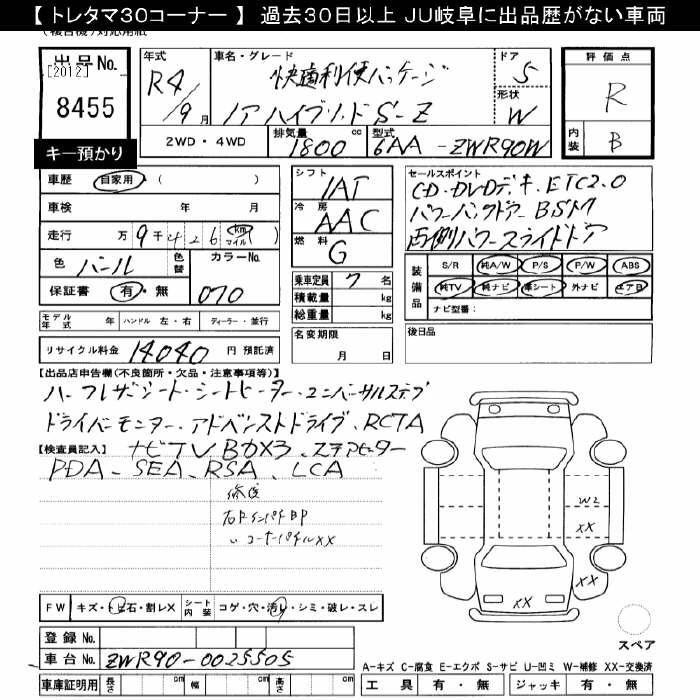 【 トレタマ30コーナー 】 過去30日以上 JU岐阜に出品歴がない車両
出品No.
[2012]
8455
キー預かり
年式 R4/9月
車名・グレード 快適利便パッケージ
ノア ハイブリッド S-Z
ドア 5
形状 W
2WD・4WD
排気量 1800 cc
型式 6AA-ZWR90W
評価点 R
内装 B
車歴 自家用 ( )
車検 年 月
走行 万 9千426 (km マイル)
色 パール
色替
カラーNo. 070
保証書 有・無
モデル年式 年 ハンドル 左・右 ディーラー・並行
リサイクル料金 14040 円 預託済
シフト IAT
冷房 AAC
燃料 G
乗車定員 7 名
積載量 kg
総重量 kg
名変期限 月 日
セールスポイント
CD・DVDデッキ、ETC2.0
パワーバックドアー BSM
両側パワースライドドア
装備品 S/R 純A/W P/S P/W ABS
純TV 純ナビ 革シート 外ナビ エアB
ナビ型番:
後日品
【出品店申告欄(不良箇所・欠品・注意事項等)】
ハーフレザーシート・シートヒーター・ユニバーサルステップ
ドライバーモニター・アドバンストドライブ、RCTA
【検査員記入】 ナビTV BOX3、ステアヒーター
PDA、SEA、RSA、LCA
右Rインパネ BP
〃 コーナーパネルXX
W2
XX
XX
XX
FW キズ・トビ石・割レX シート内装 コゲ・穴・汚レ・シミ・破レ・スレ
登録 No.
車台 No. ZWR90-0025505
車庫証明用 長さ cm 幅 cm 高さ cm
スペア
A-キズ C-腐食 E-エクボ S-サビ U-凹ミ W-補修 XX-交換済
工具 有・無 ジャッキ 有・無